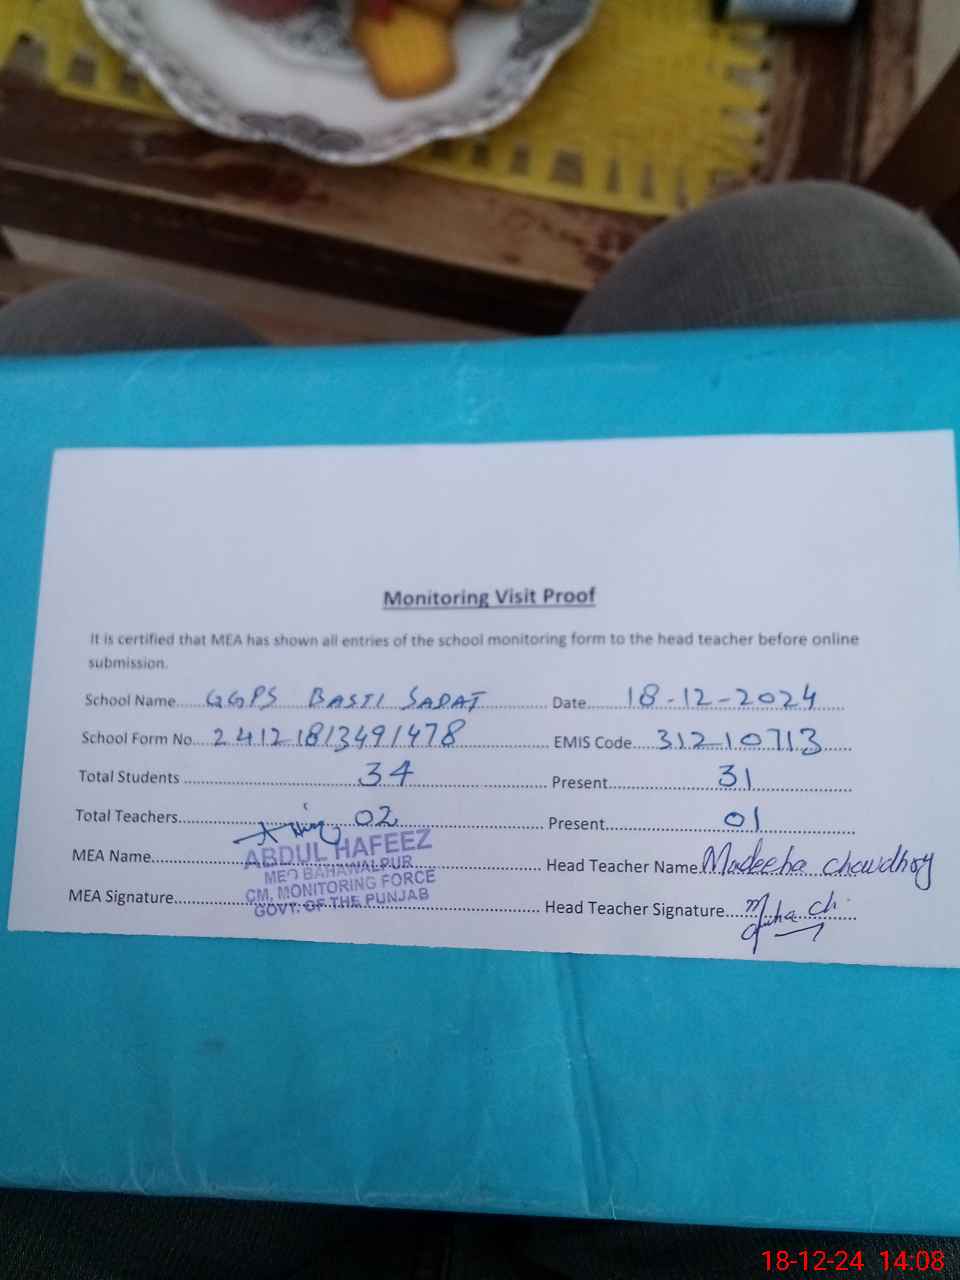 Monitoring Visit Proof
It is certified that MEA has shown all entries of the school monitoring form to the head teacher before online
submission.
School Name......GGPS BASTI SADAT.................. Date......18-12-2024......
School Form No...24121813491478.................. EMIS Code....31210713......
Total Students ..............34.............. Present..............31..............
Total Teachers..............02.............. Present..............01..............
MEA Name.............. Head Teacher Name.Madeeha chowdhry
MEA Signature.............. Head Teacher Signature..............
ABDUL HAFEEZ
MEO BAHAWALPUR
CM, MONITORING FORCE
GOVT: OF THE PUNJAB
18-12-24 14:08